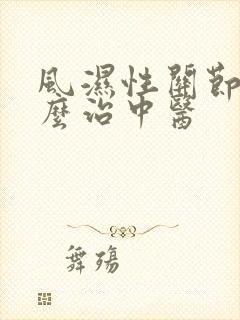 風濕性關節
麼治中醫
舞殤